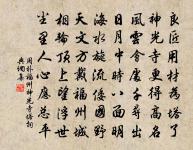 良匠用材爲塔了
神光寺更得高名
風雲會處千尋出
日月中時八面明
海水旋流倭國野
天文方戴福州城
相輪頂上望浮世
塵裏人心應總平
周朴福州神光寺塔